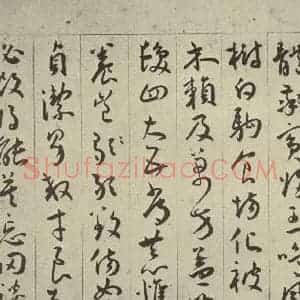 體率賓歸王鳴
樹白駒食場化被
木賴及萬方蓋
髮四大五常恭惟
養豈敢毀傷女
貞潔男效才良
必改得能莫忘罔談
Shufaziliao.COM